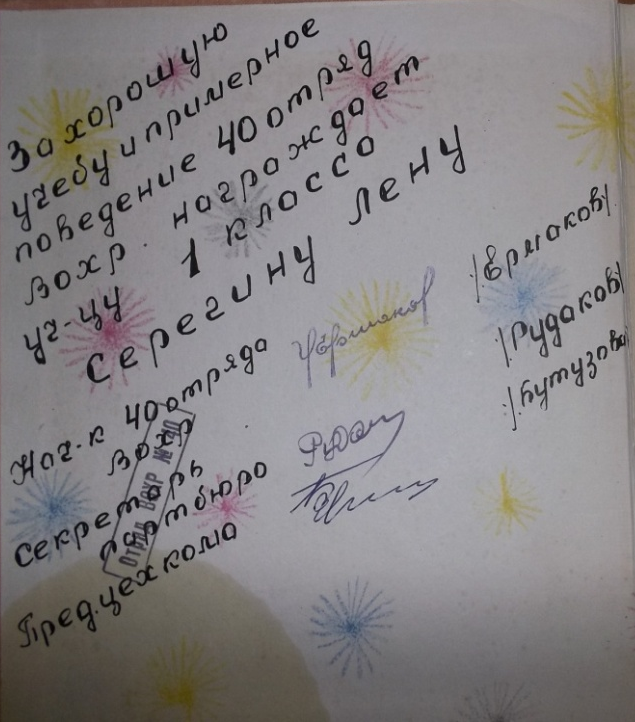 За хорошую
учебу и примерное
поведение 40 отряд
вохр. награждает
уч-цу 1 класса
Серегину Лену
Нач-к 40 отряда
вохр /Ермаков/.
Секретарь
партбюро /Рудаков/
Пред.цехкома /Бутузова/
Отряд ВОХР № 40